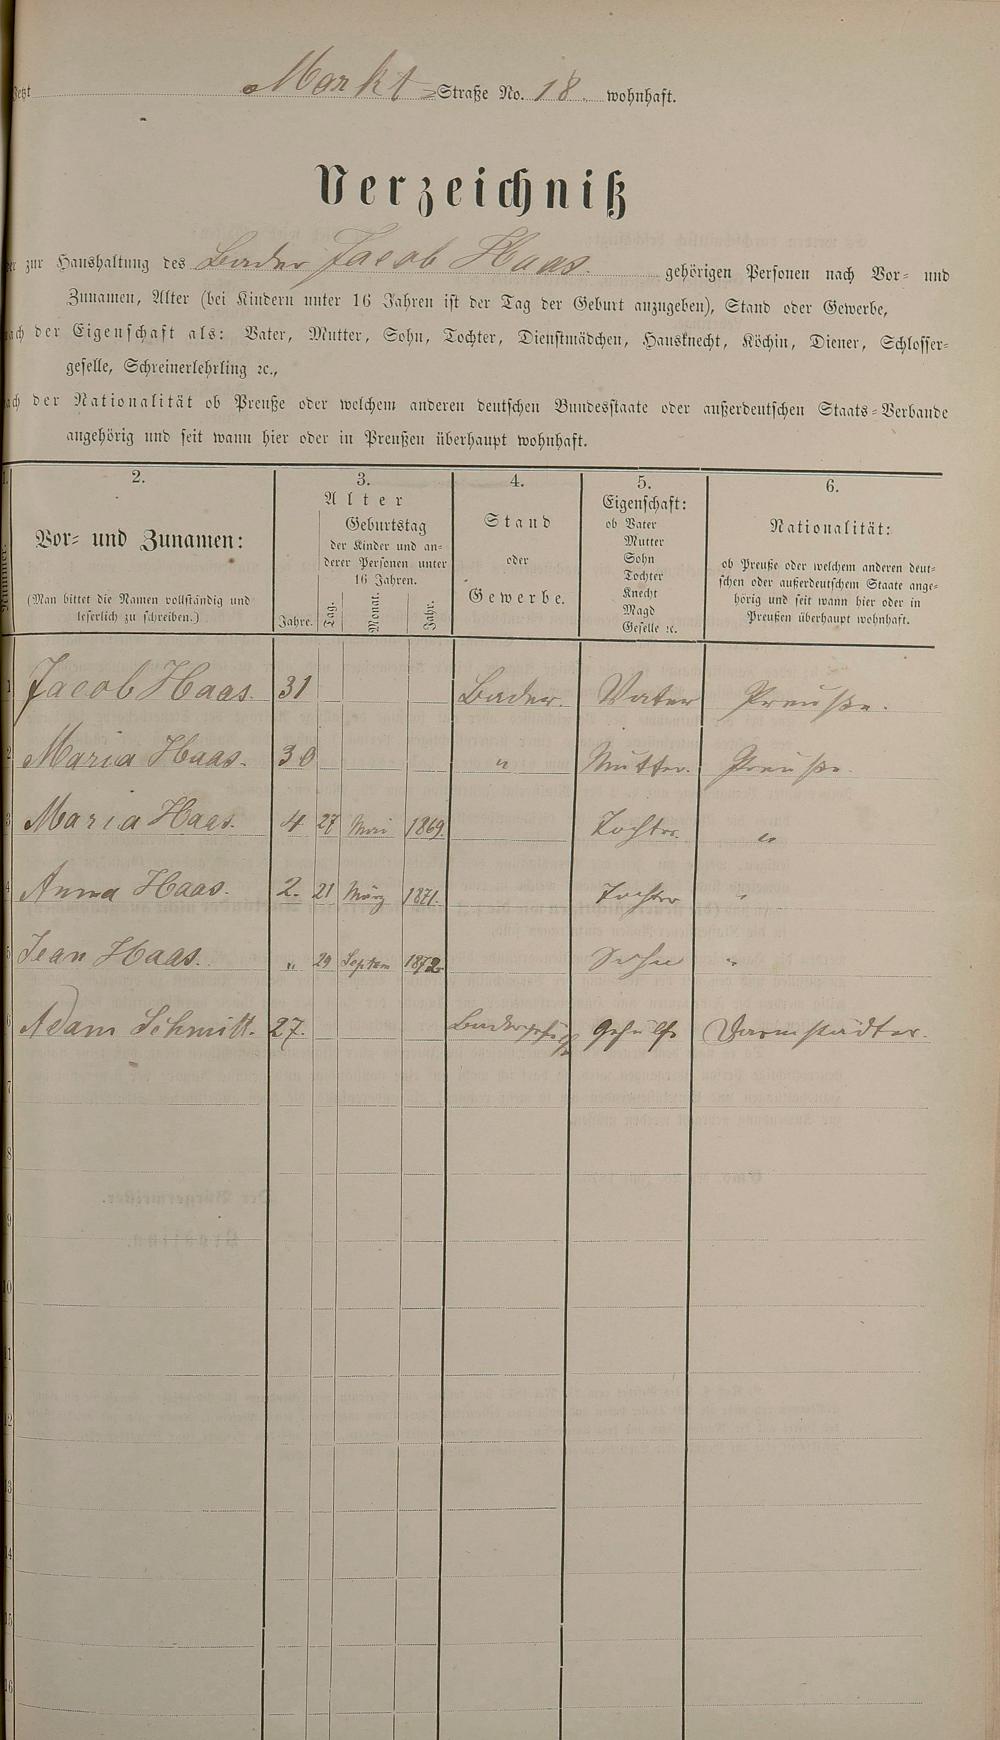 Jetzt Markt-Straße No. 18. wohnhaft.
Verzeichniß
der zur Haushaltung des Bader Jacob Haas. gehörigen Personen nach Vor- und
Zunamen, Alter (bei Kindern unter 16 Jahren ist der Tag der Geburt anzugeben), Stand oder Gewerbe,
nach der Eigenschaft als: Vater, Mutter, Sohn, Tochter, Dienstmädchen, Hausknecht, Köchin, Diener, Schlosser-
geselle, Schreinerlehrling ꝛc.,
nach der Nationalität ob Preuße oder welchem anderen deutschen Bundesstaate oder außerdeutschen Staats-Verbande
angehörig und seit wann hier oder in Preußen überhaupt wohnhaft.
1. 2. 3. 4. 5. 6.
Nummer.
Vor- und Zunamen:
(Man bittet die Namen vollständig und
leserlich zu schreiben.)
Alter
Jahre.
Geburtstag
der Kinder und an-
derer Personen unter
16 Jahren.
Tag. Monat. Jahr.
Stand
oder
Gewerbe.
Eigenschaft:
ob Vater
Mutter
Sohn
Tochter
Knecht
Magd
Geselle ꝛc.
Nationalität:
ob Preuße oder welchem anderen deut-
schen oder außerdeutschem Staate ange-
hörig und seit wann hier oder in
Preußen überhaupt wohnhaft.
1 Jacob Haas. 31 Bader. Vater Preuße.
2 Maria Haas. 30 " Mutter. Preuße.
3 Maria Haas. 4 27 Mai 1869. Tochter. "
4 Anna Haas. 2. 21 März 1871. Tochter "
5 Jean Haas. " 29 Septem 1872. Sohn "
6 Adam Schmitt. 27. Badergehülfe Gehülfe Darmstädter.
7
8
9
10
11
12
13
14
15
16